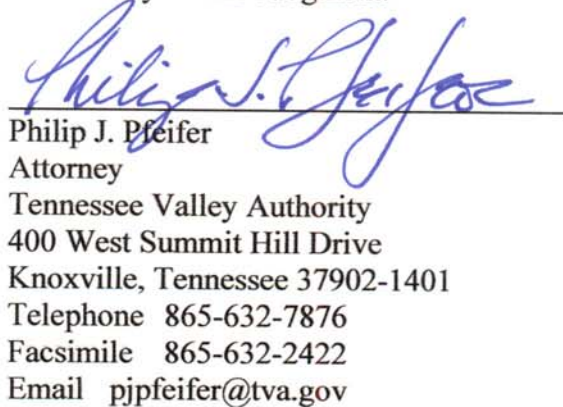 Philip J. Pfeifer
Philip J. Pfeifer
Attorney
Tennessee Valley Authority
400 West Summit Hill Drive
Knoxville, Tennessee 37902-1401
Telephone 865-632-7876
Facsimile 865-632-2422
Email pjpfeifer@tva.gov